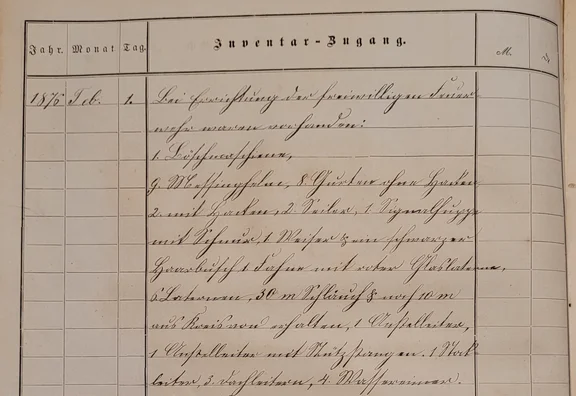 Jahr. Monat Tag. Inventar-Zugang. M.
1876 Feb. 1. Bei Errichtung der freiwilligen Feuer-
wehr waren vorhanden:
1 Löschmaschine,
9 Messinghelm, 8 Gurten ohne Hacken
2 mit Hacken, 2 Seiler, 1 Signalhuppe
mit Schnur, 1 Weiser & ein schwarzer
Haarbusch 1 Fahne mit roter Glaslaterne,
6 Laternen, 30 m Schläuch & noch 10 m
aus Kreis von erhalten, 1 Anstelleiter,
1 Anstelleiter mit Stützstangen. 1
leiter, 3 Dachleitern, 4 Wassereimer.